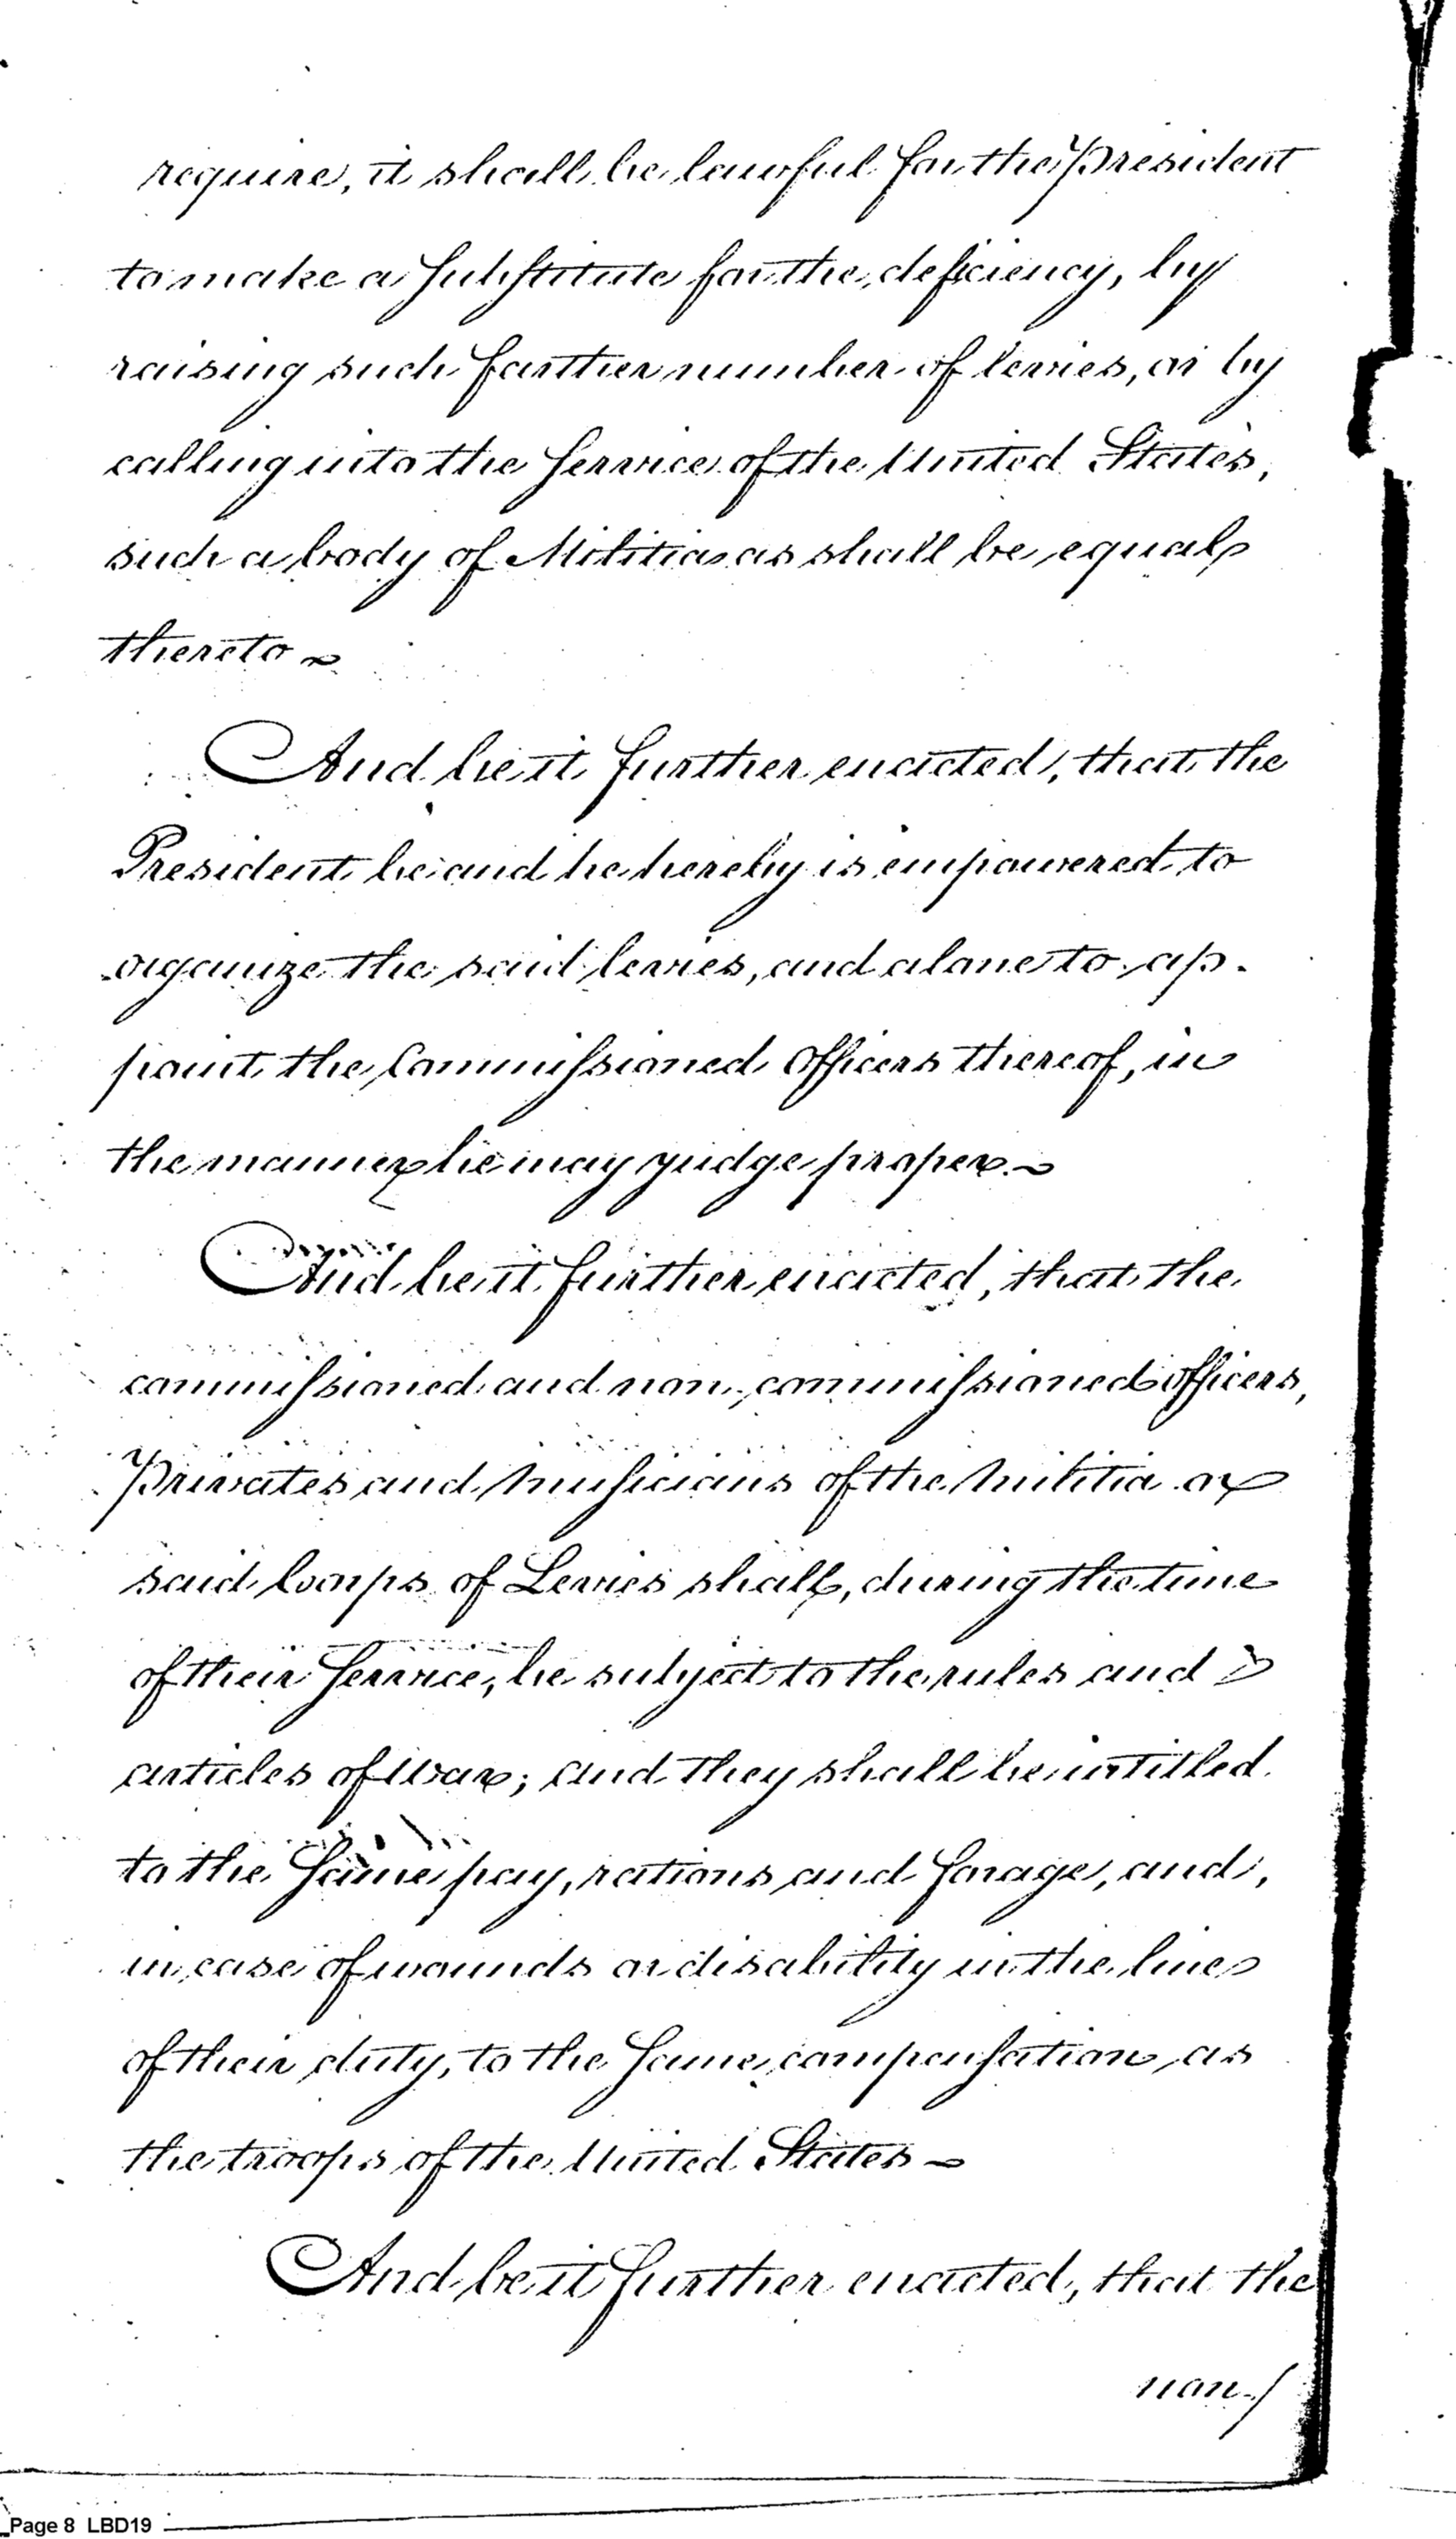 require, it shall be lawful for the President
to make a Substitute for the deficiency, by
raising such farther number of levies, or by
calling into the Service of the United States,
such a body of Militia as shall be equal
thereto ~
And be it further enacted, that the
President be and he hereby is empowered to
organize the said levies, and alone to ap-
point the Commissioned Officers thereof, in
the manner he may judge proper. ~
And be it further enacted, that the
commissioned and non-commissioned officers,
Privates and Musicians of the Militia or
said Corps of Levies shall, during the time
of their Service, be subject to the rules and
articles of War; and they shall be intitled
to the Same pay, rations and forage, and,
in case of wounds or disability in the line
of their duty, to the Same compensation as
the troops of the United States ~
And be it further enacted, that the
non-/
Page 8 LBD19